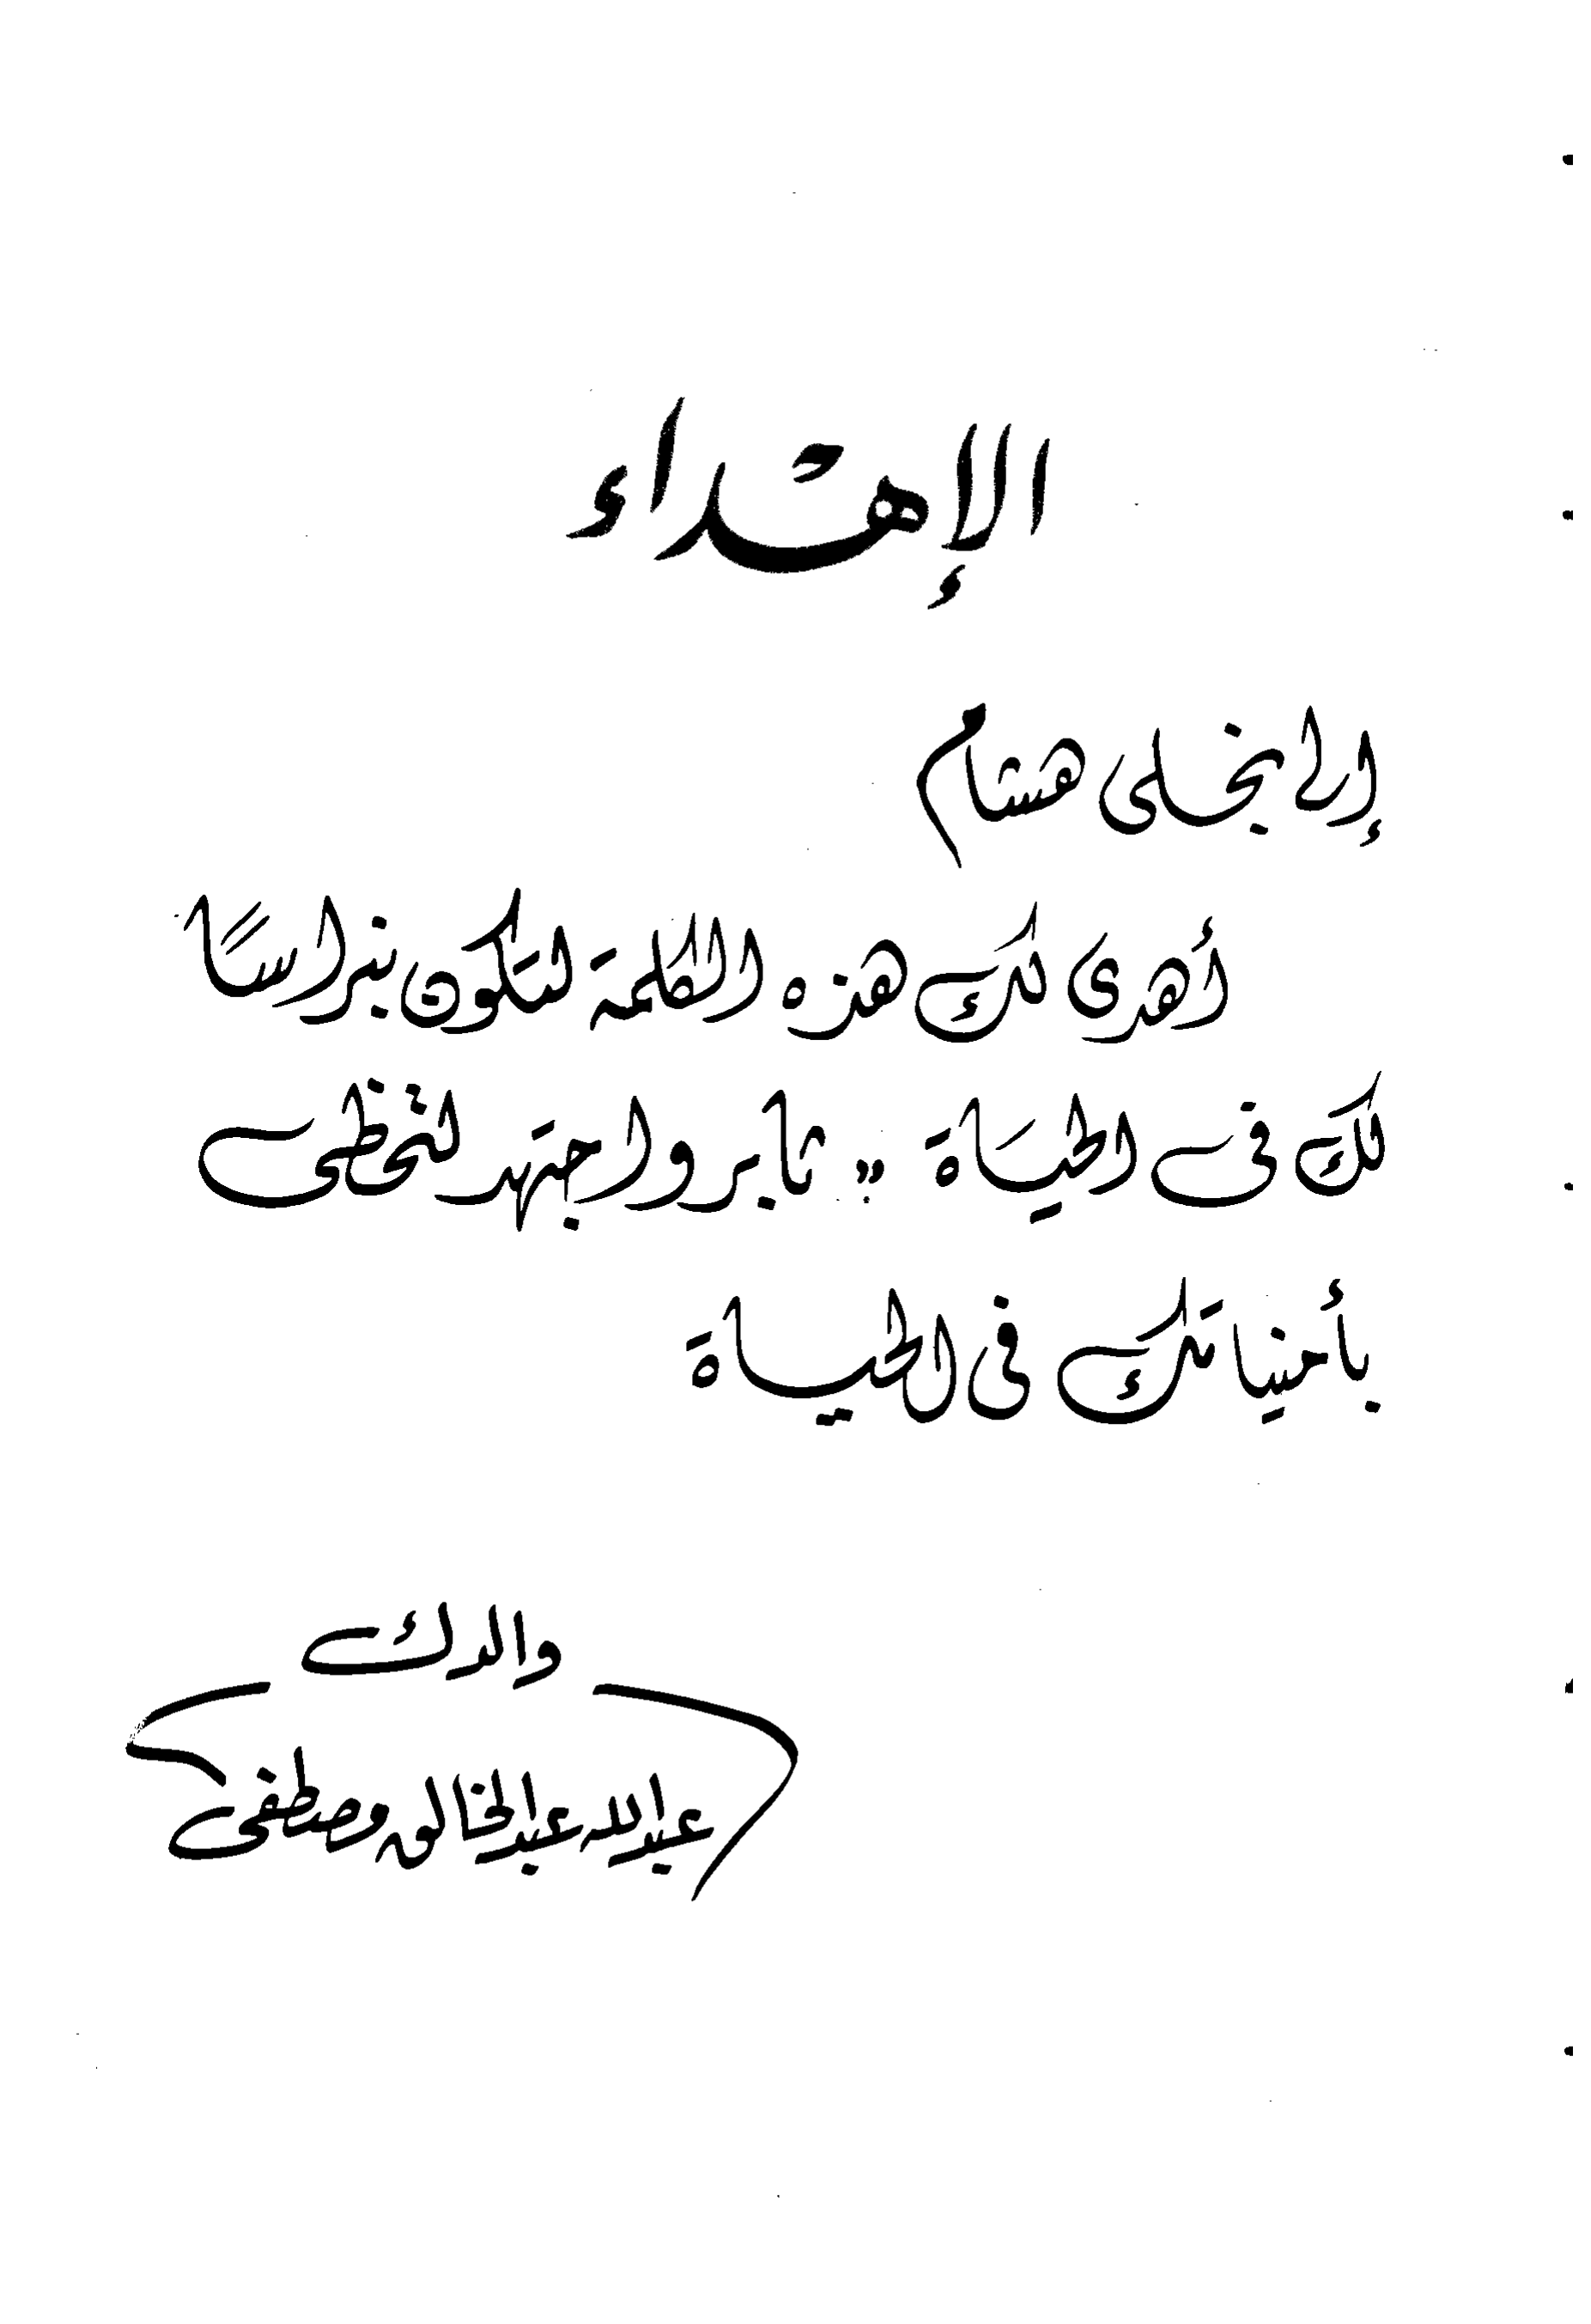 الإهداء
إلى نجلى هشام
أهدى لك هذه الكلمة لتكون نبراساً
لك فى الحياة " ثابر واجتهد لتحظى
بأمنياتك فى الحياة
والدك
عبدالله عبدالخالق مصطفى